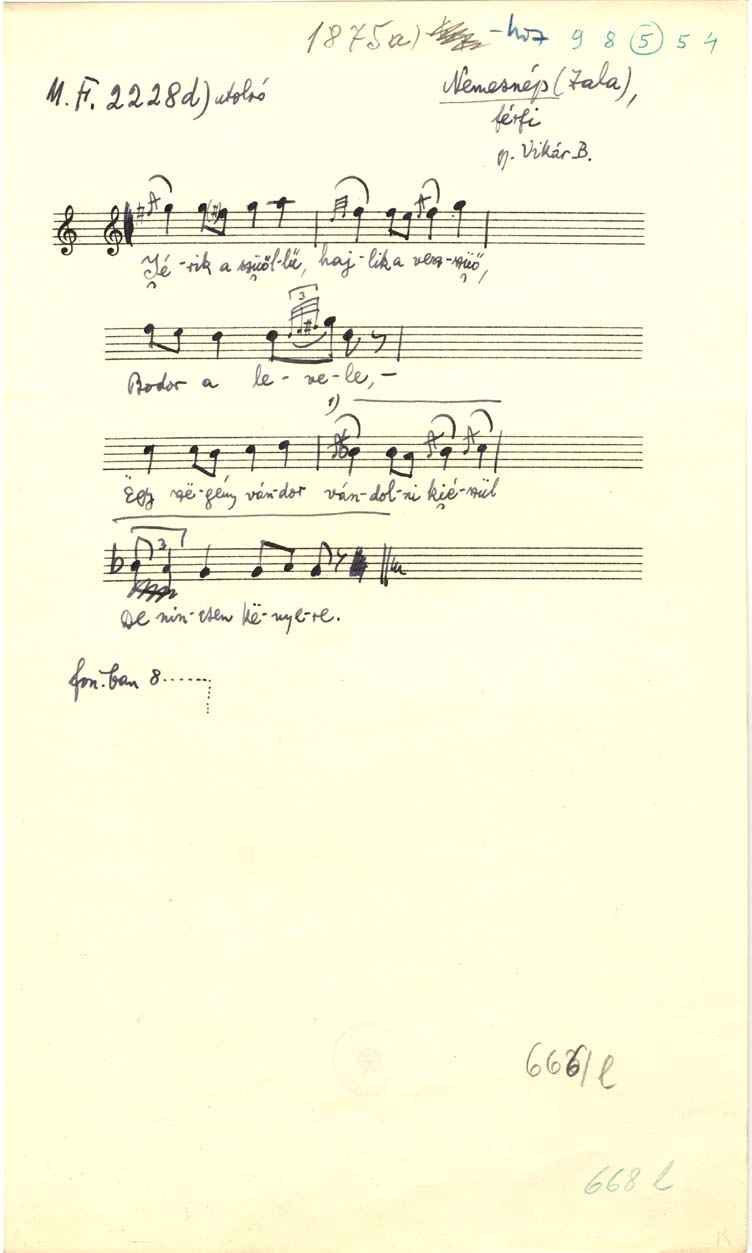 1875a) -hoz 9 8 5 5 4
M. F. 2228d) utolsó
Nemesnép (Zala),
férfi
gy. Vikár B.
Jé-rik a szüöl-lü, haj-lik a vesz-szüö,
3
Bodor a le-ve-le,-
1)
Ëgy szë-gény ván-dor ván-dol-ni kié-szül
3
De nin-csen kë-nye-re.
fon.-ban 8
666/l
668 l